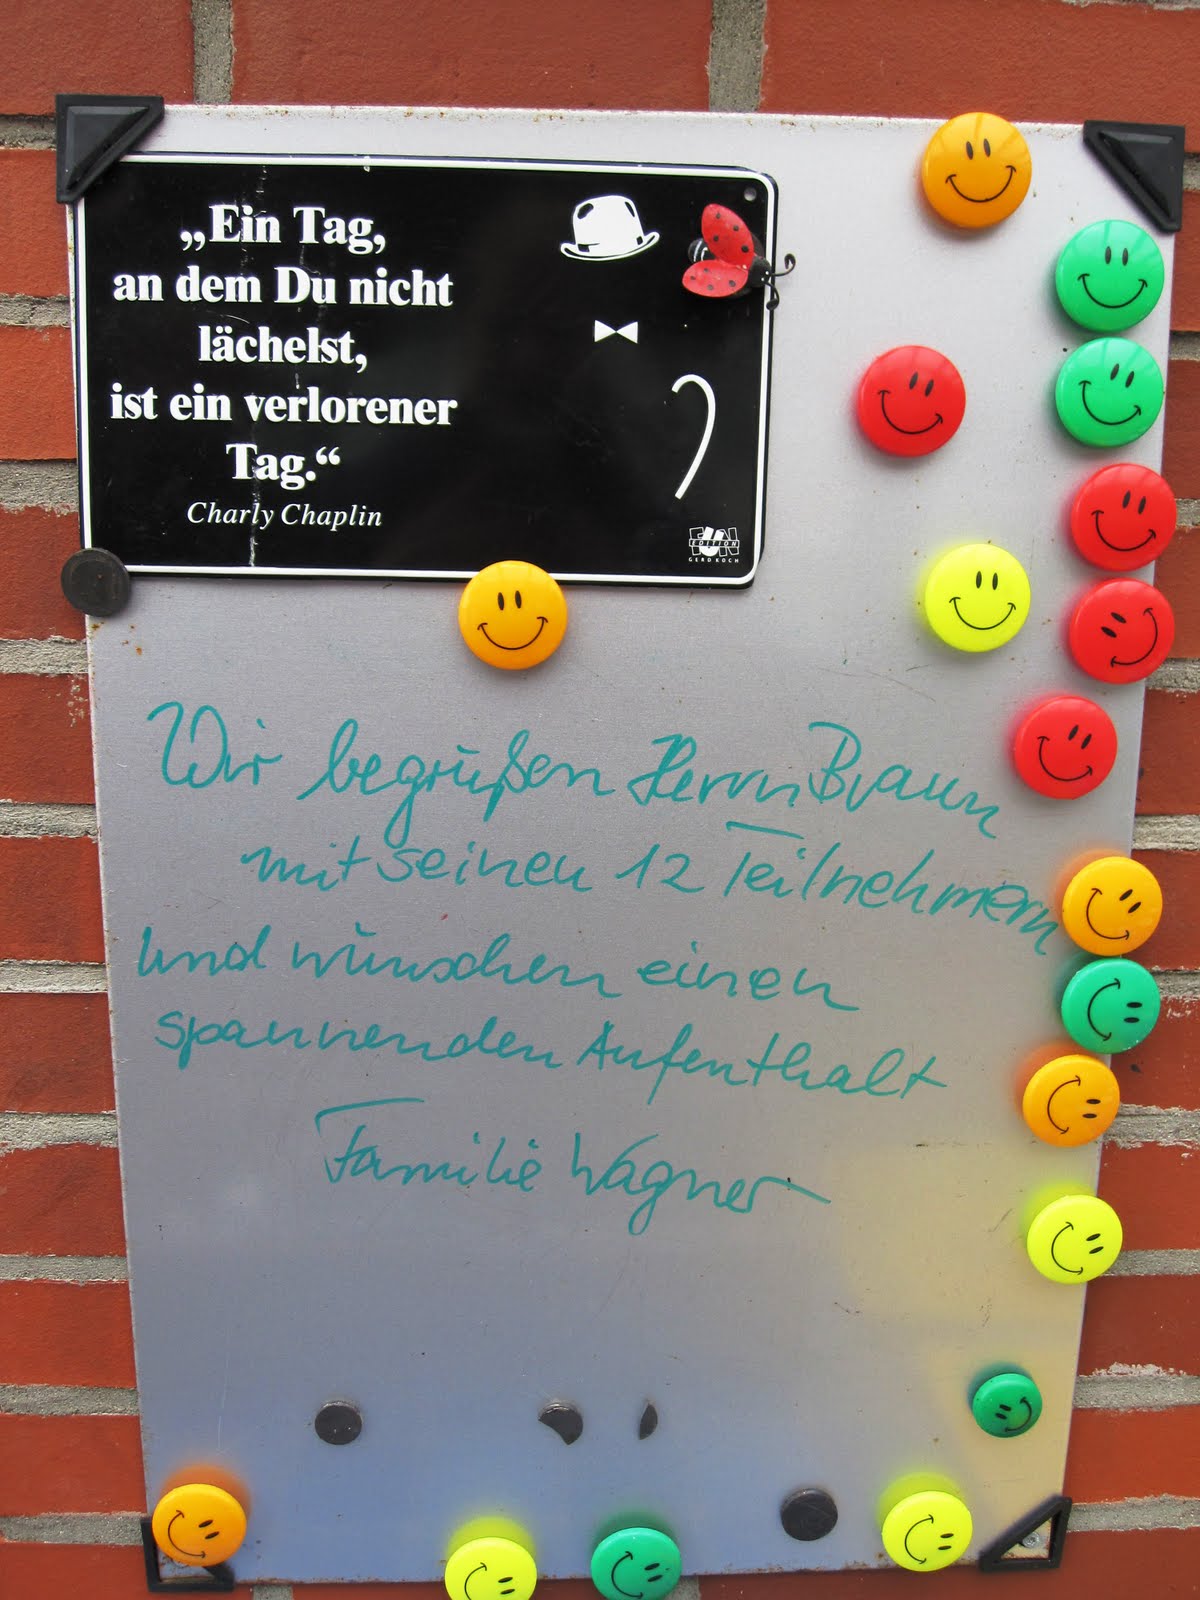 „Ein Tag,
an dem Du nicht
lächelst,
ist ein verlorener
Tag.“
Charly Chaplin
FUN
EDITION
GERD KOCH
Wir begrüßen Herrn Braun
mit seinen 12 Teilnehmern
und wünschen einen
spannenden Aufenthalt
Familie Wagner